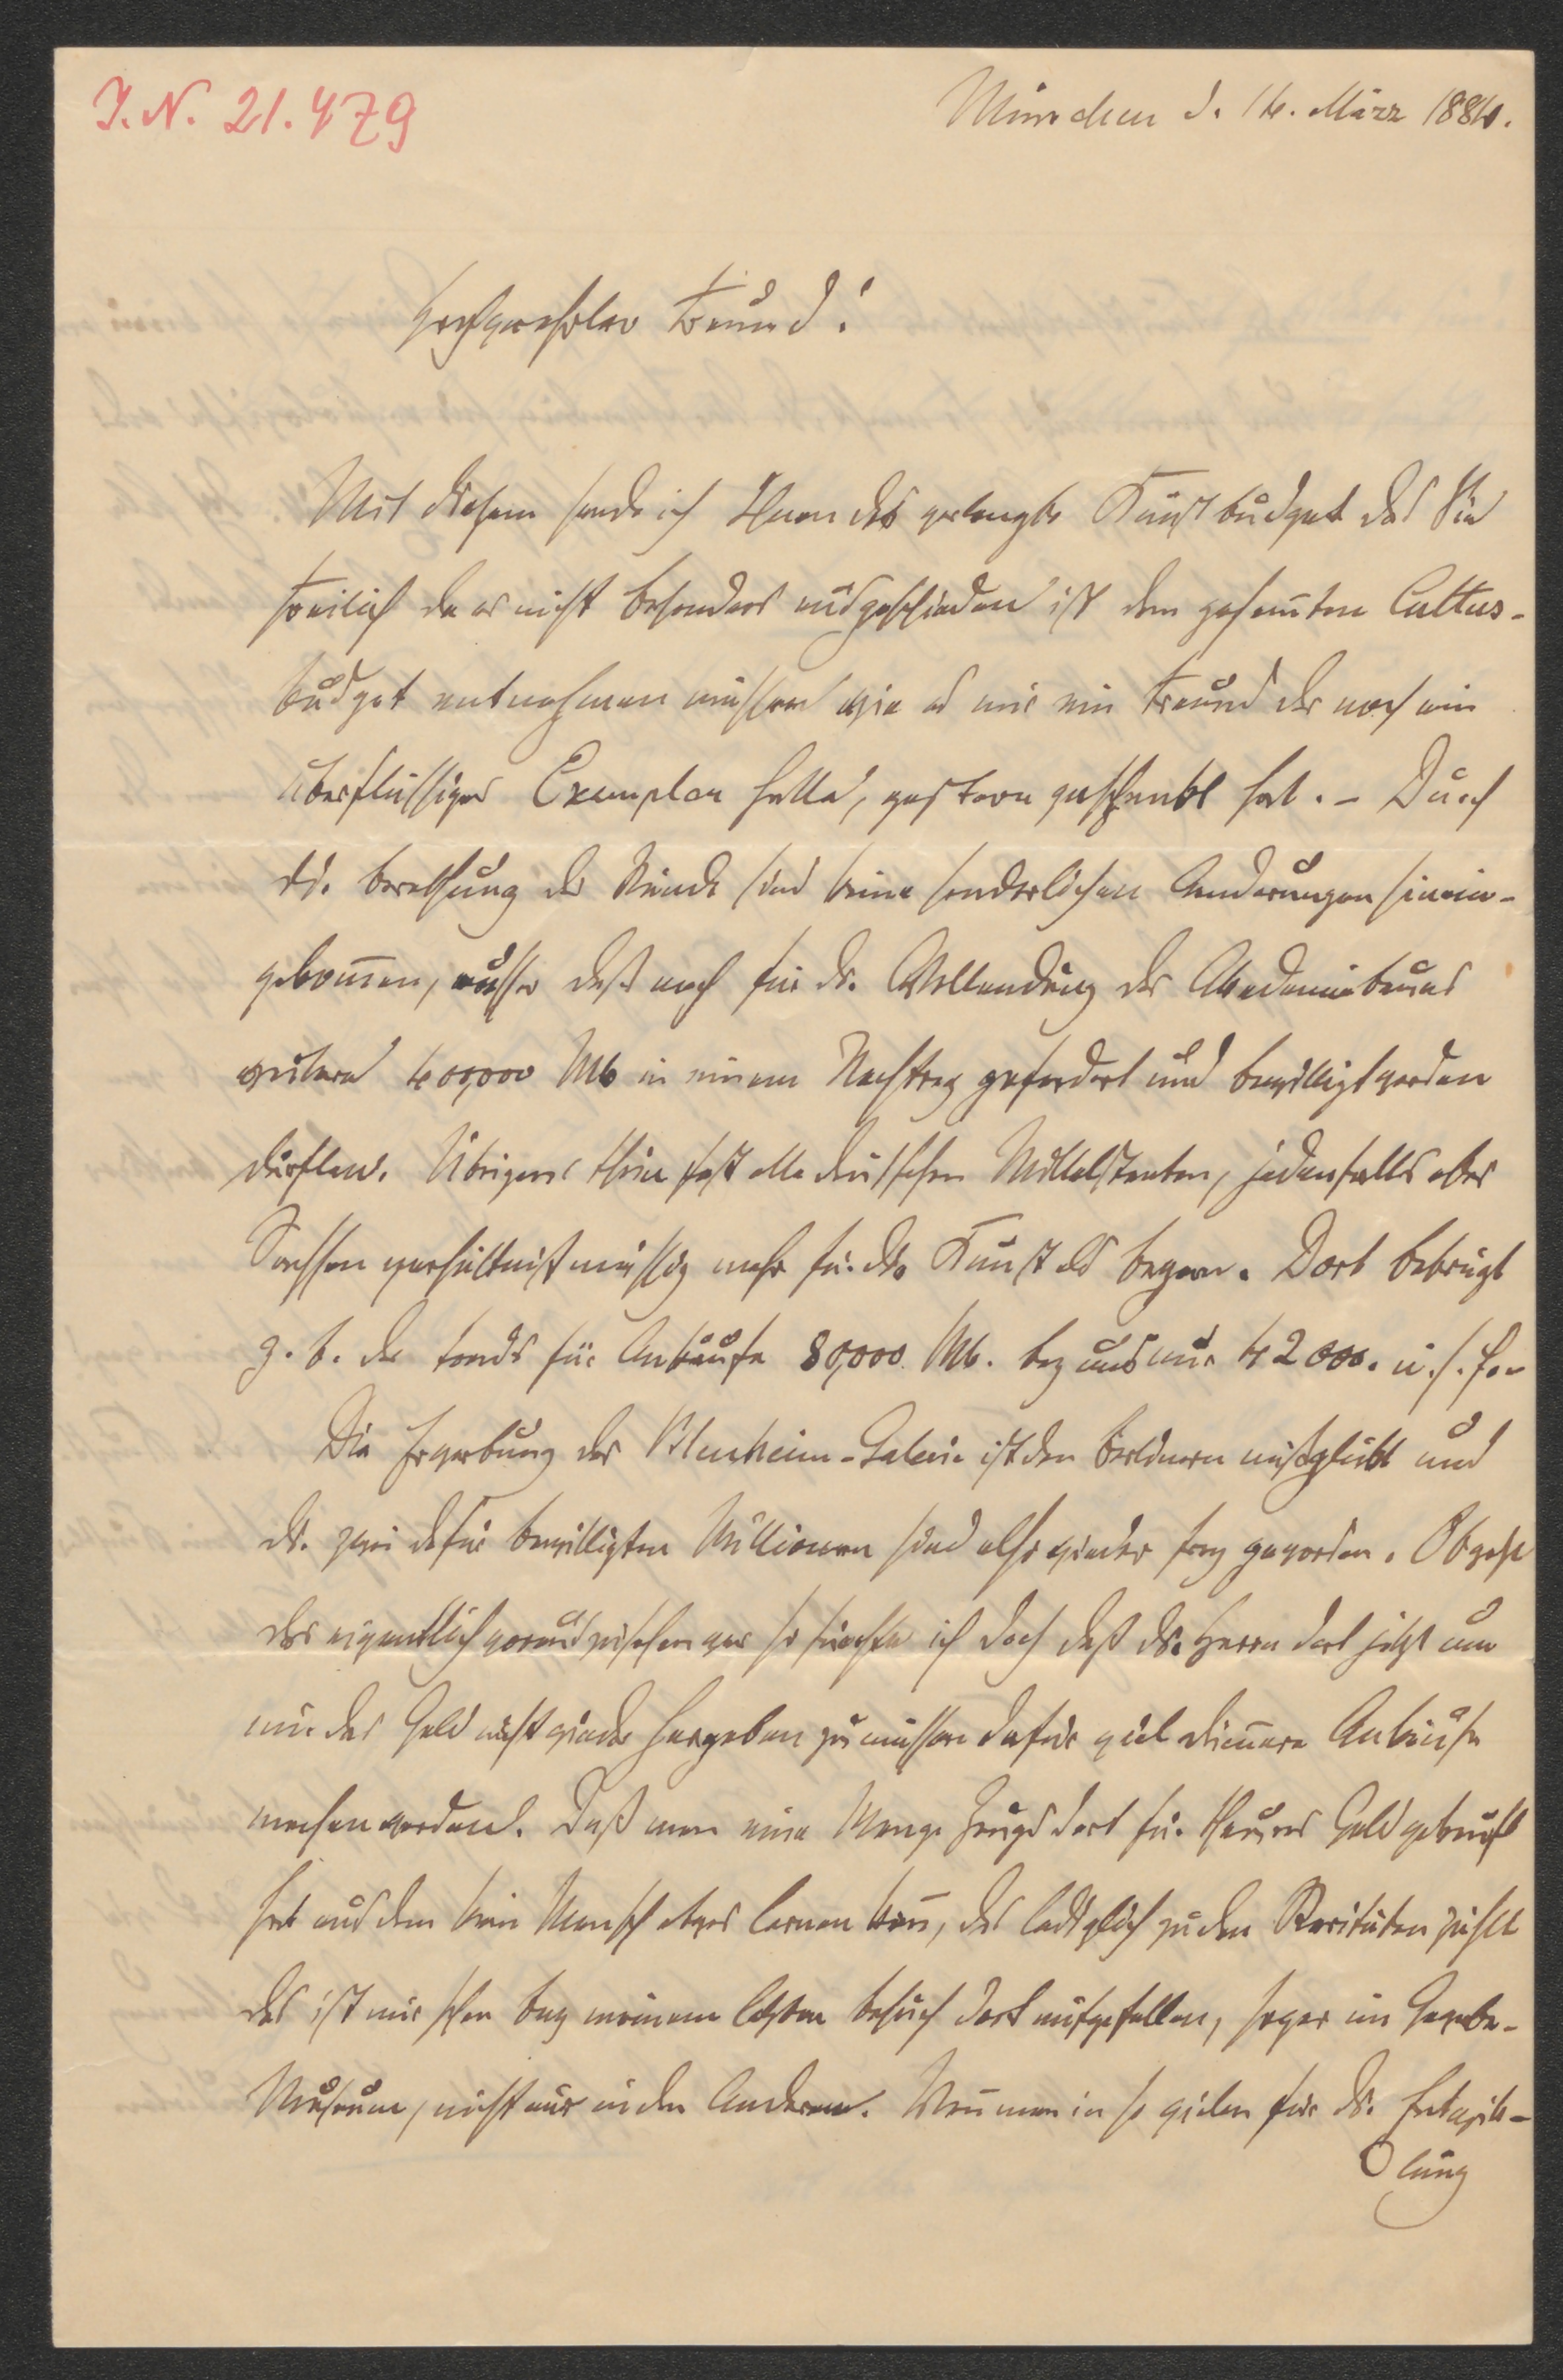 I. N. 21.479
München d. 14. März 1884.
Hochverehrter Freund!
Mit diesem sende ich Ihnen das verlangte Kunstbudget das Sie
freilich da es nicht besonders ausgeschieden ist dem gesam̅ten Cultus-
budget entnehmen müssen wie es mir ein Freund der noch ein
überflüssiges Exemplar hatte, gestern geschenkt hat. – Durch
die Berathung der Stände sind keine sonderlichen Aenderungen hinein-
gekom̅en, ausser daß noch für die Vollendung des Akademiebaues
weitere 400,000 Mk in einem Nachtrag gefordert und bewilligt werden
dürften. Übrigens thun fast alle deutschen Mittelstaaten, jedenfalls aber
Sachsen verhältnißmässig mehr für die Kunst als Bayern. Dort beträgt
z. B. der Fonds für Ankäufe 80,000 Mk. bey uns nur 42000. u. s. f. –
Die Erwerbung der Blenheim-Galerie ist den Berlinern mißglückt und
die zwei dafür bewilligten Millionen sind also wieder frey geworden. Obwohl
das eigentlich vorauszusehen war so fürchte ich doch daß die Herrn dort jetzt um
nur das Geld nicht wieder hergeben zu müssen dafür viel düm̅ere Ankäufe
machen werden. Daß man eine Menge Zeugs dort für theures Geld gekauft
hat aus dem kein Mensch etwas lernen kan̅, das lediglich zu den Raritäten zählt
das ist mir schon bey meinem letzten Besuch dort aufgefallen, sogar im Gewerbe-
Museum, nicht nur in den Anderen. Wen̅ man in so vielen für die Entwick-
lung